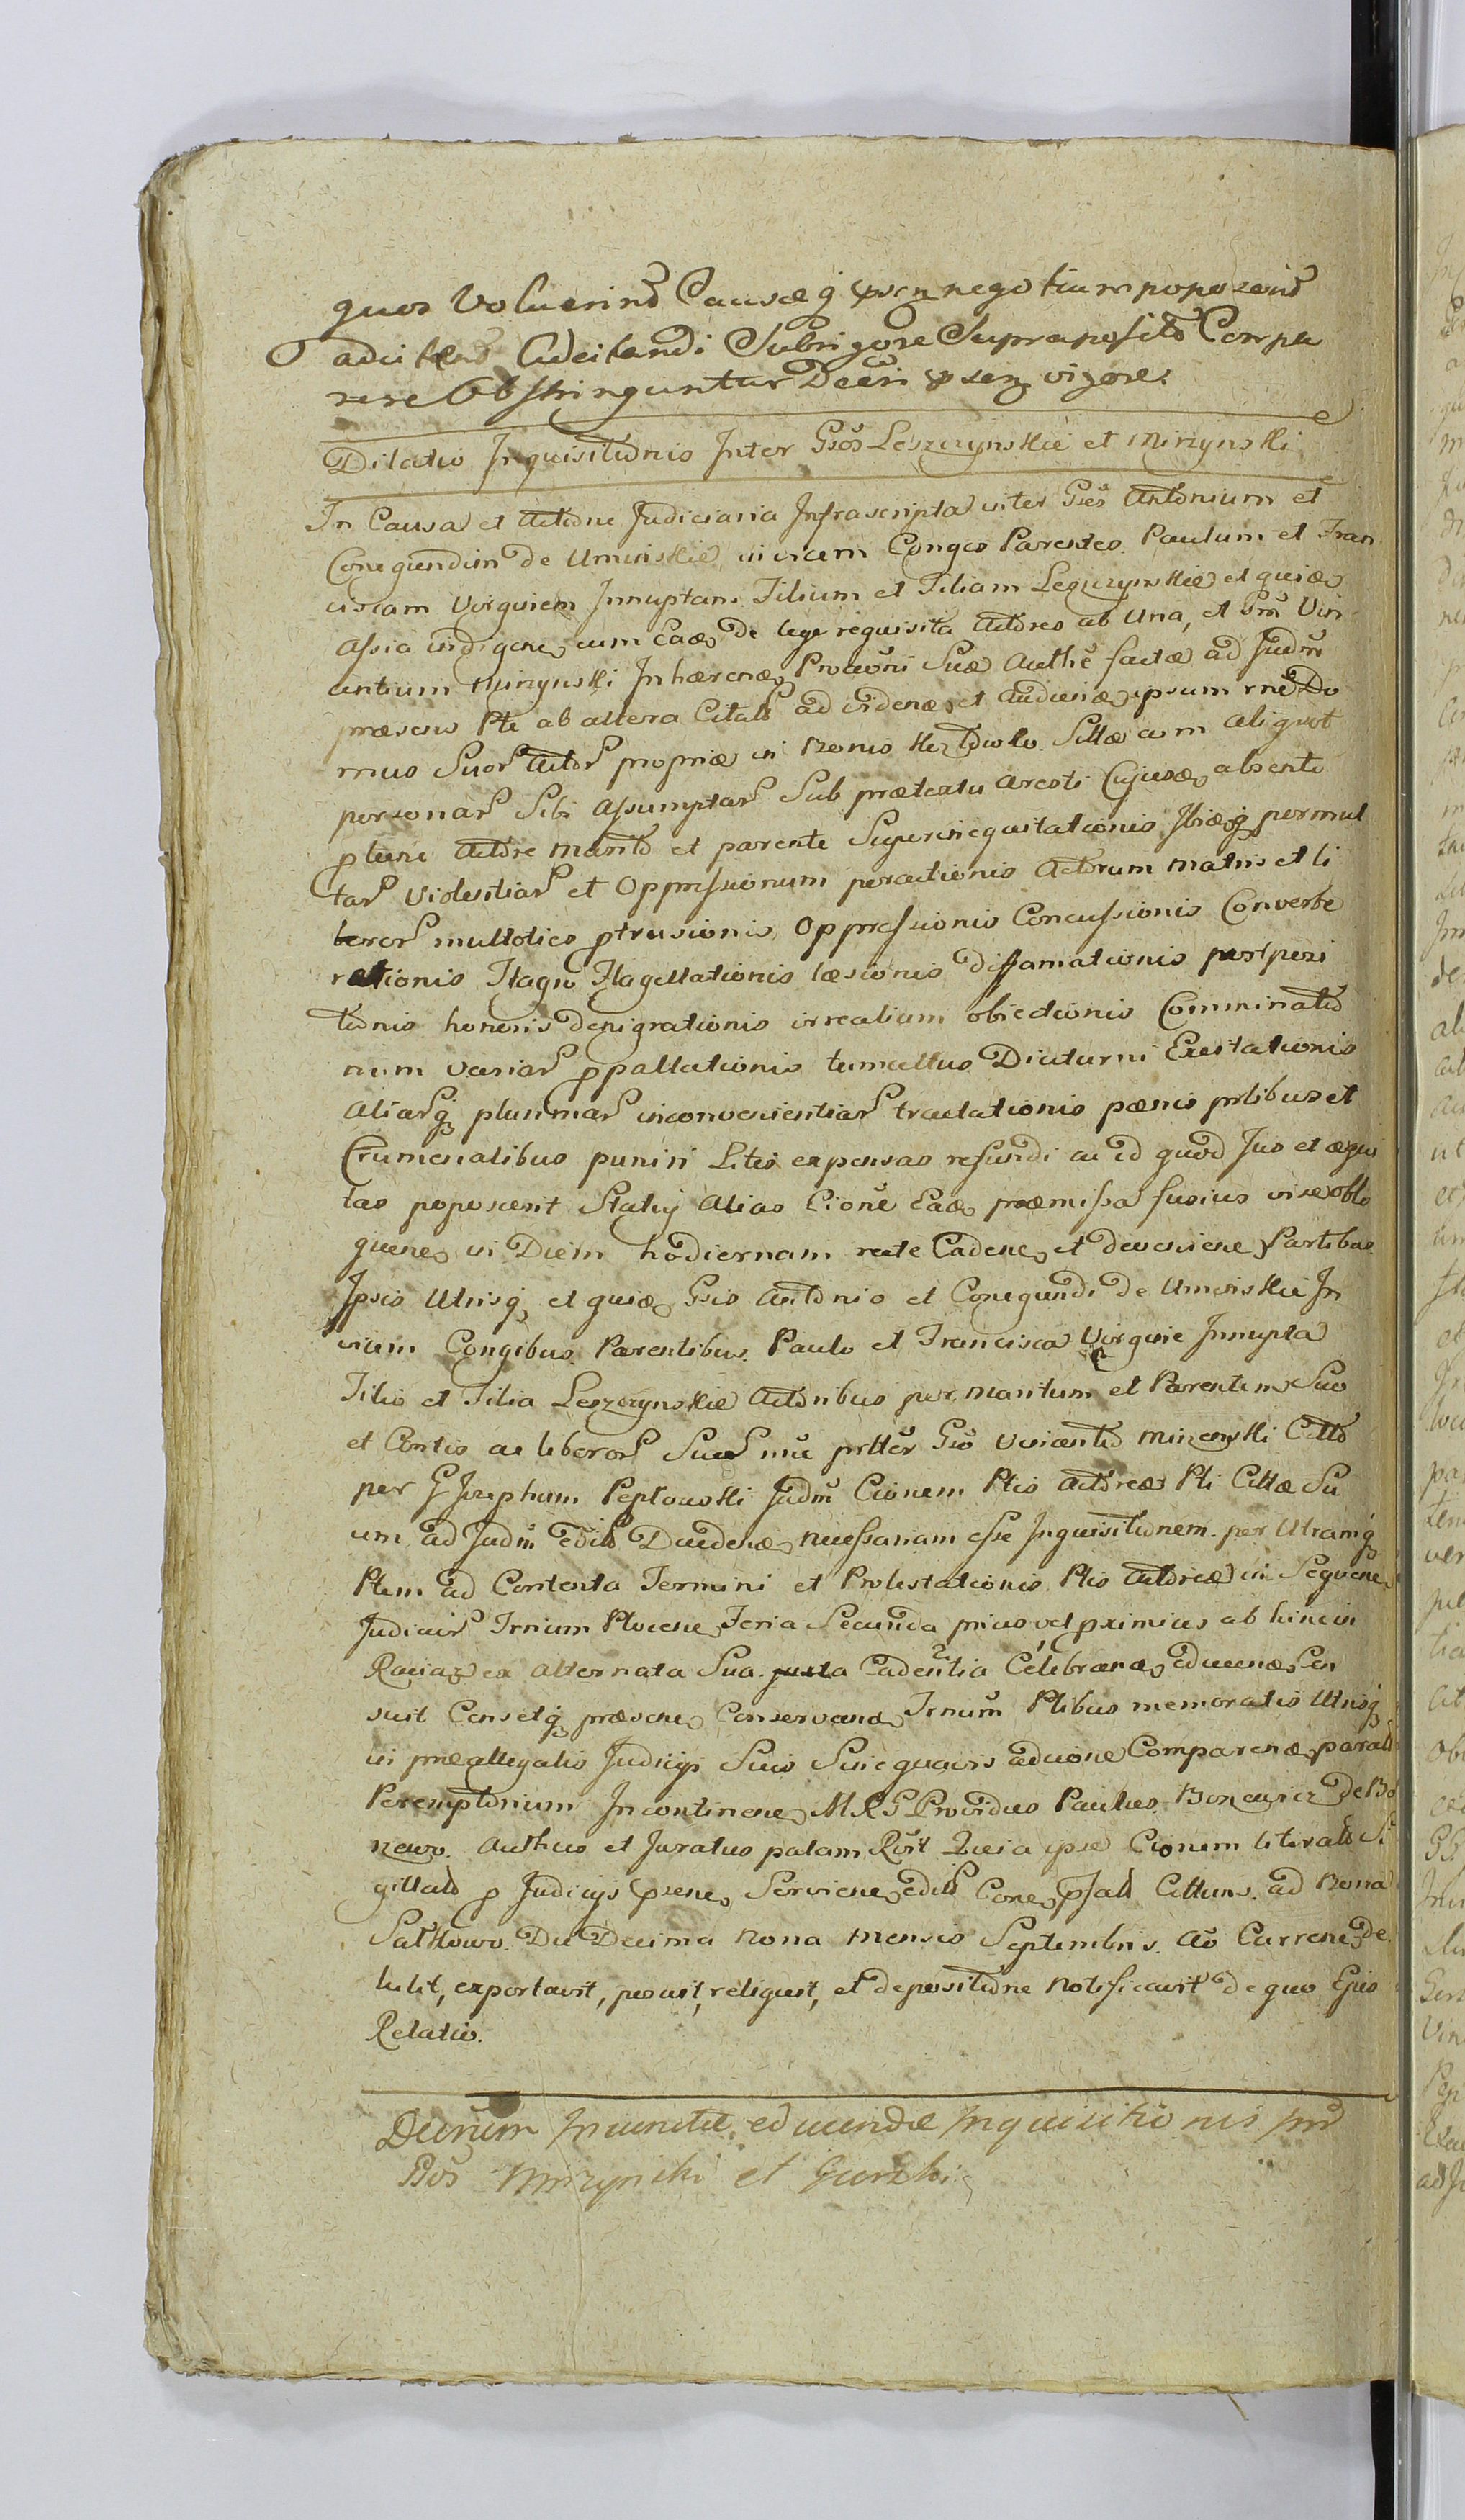 quos Voluerint Causaeq psen negotium poposcerit
adcitand Adcitandi Sub rigore Supraposito Compa
rere Obstringuntur Decri psen vigore.
Dilatio Inquisitionis Inter Gsos Leszczynskie et Mirzynski
In Causa et Actione Judiciaria Infrascripta inter Gses Antonium et
Conegundim de Uminskie invicem Conges Parentes Paulum et Fran
ciscam Virginem Innuptam Filium et Filiam Leszczynskie et quia
Assia indigene cum Ea de lege requisita Actores ab Una, et Grm Vin
centium Mirzynski Inhaerendo Procõni Suae Authe factae ad Judm
praesens Pte ab altera Citatt ad videndum et Audiendum ipsum rne Do
mus Suor Actor propriae in Bonis Sittae cum aliquot
personar Sibi Assumptar Sub praetextu Aresti Cujusd absente
ptunc Actore Marito et parente Superinequitationis Ibidq permul
tar Violentiar et Oppressionum peractionis Actorum matris et li
beror multoties ptrusionis Oppressionis Concussionis Converbe
rationis Flagro Flagellationis laesionis diffamationis postposi
tionis honoris denigrationis irrealium obiectionis Comminatio
num variar ppallationis tumultus Diuturni Excitationis
Aliarq plurimar inconvenientiar tractationis paenis ptlibus et
Crumenalibus puniri Litis expensas refundi ac id quod Jus et aequi
tas poposcerit Statuj Alias Cione Ead praemissa fusius in se oblo
quene in Diem hodiernam recte Cadene et deveniene Partibus
Ipsis Utrisq et quid Gsis Antonio et Conegundi de Uminskie In
vicem Congibus Parentibus Paulo et Francisca Virgine Innupta
Filio et Filia Leszczynskie Actoribus per Maritum et Parentem Suo
et Contis ac liberor Suor nne prtter Gso Vincentio Mirzynski Citto
per G Josephum Peplowski Judm Cionem Ptis Actoreae Pti Cittae Su
um ad Judm edito Ducdend necessariam esse Inquisitionem per Utramq
Ptem ad Contenta Termini et Protestationis Ptis Actoreae in Sequene
Judicior Trnium Plocene Feria Secunda prius vel pximius ab hinc in
Raciaz ex alternata Sua justa Cadentia Celebrand educend Cen
suit Censetq praesene Conservand Trnum Ptibus memoratis Utrisq
in preallegatis Judicijs Suis Sine quavis adcione Comparend parato
Peremptorium Incontinene MRG Providus Paulus de Bo
newo Authus et Juratus palam Rõit Quia ipse Cionem literatto Si
gillato p Judicijs psene Serviene edito Cone psato Cittum ad Bona
Satkowo Die Decima nona mensis Septembris Ao Currene de
tulit, exportavit, posuit, reliquit, et depositione notificavit de quo Ejus
Relatio.
Decrum Injuncta educendae Inquisitionis intr
Gsos Mirzynski et